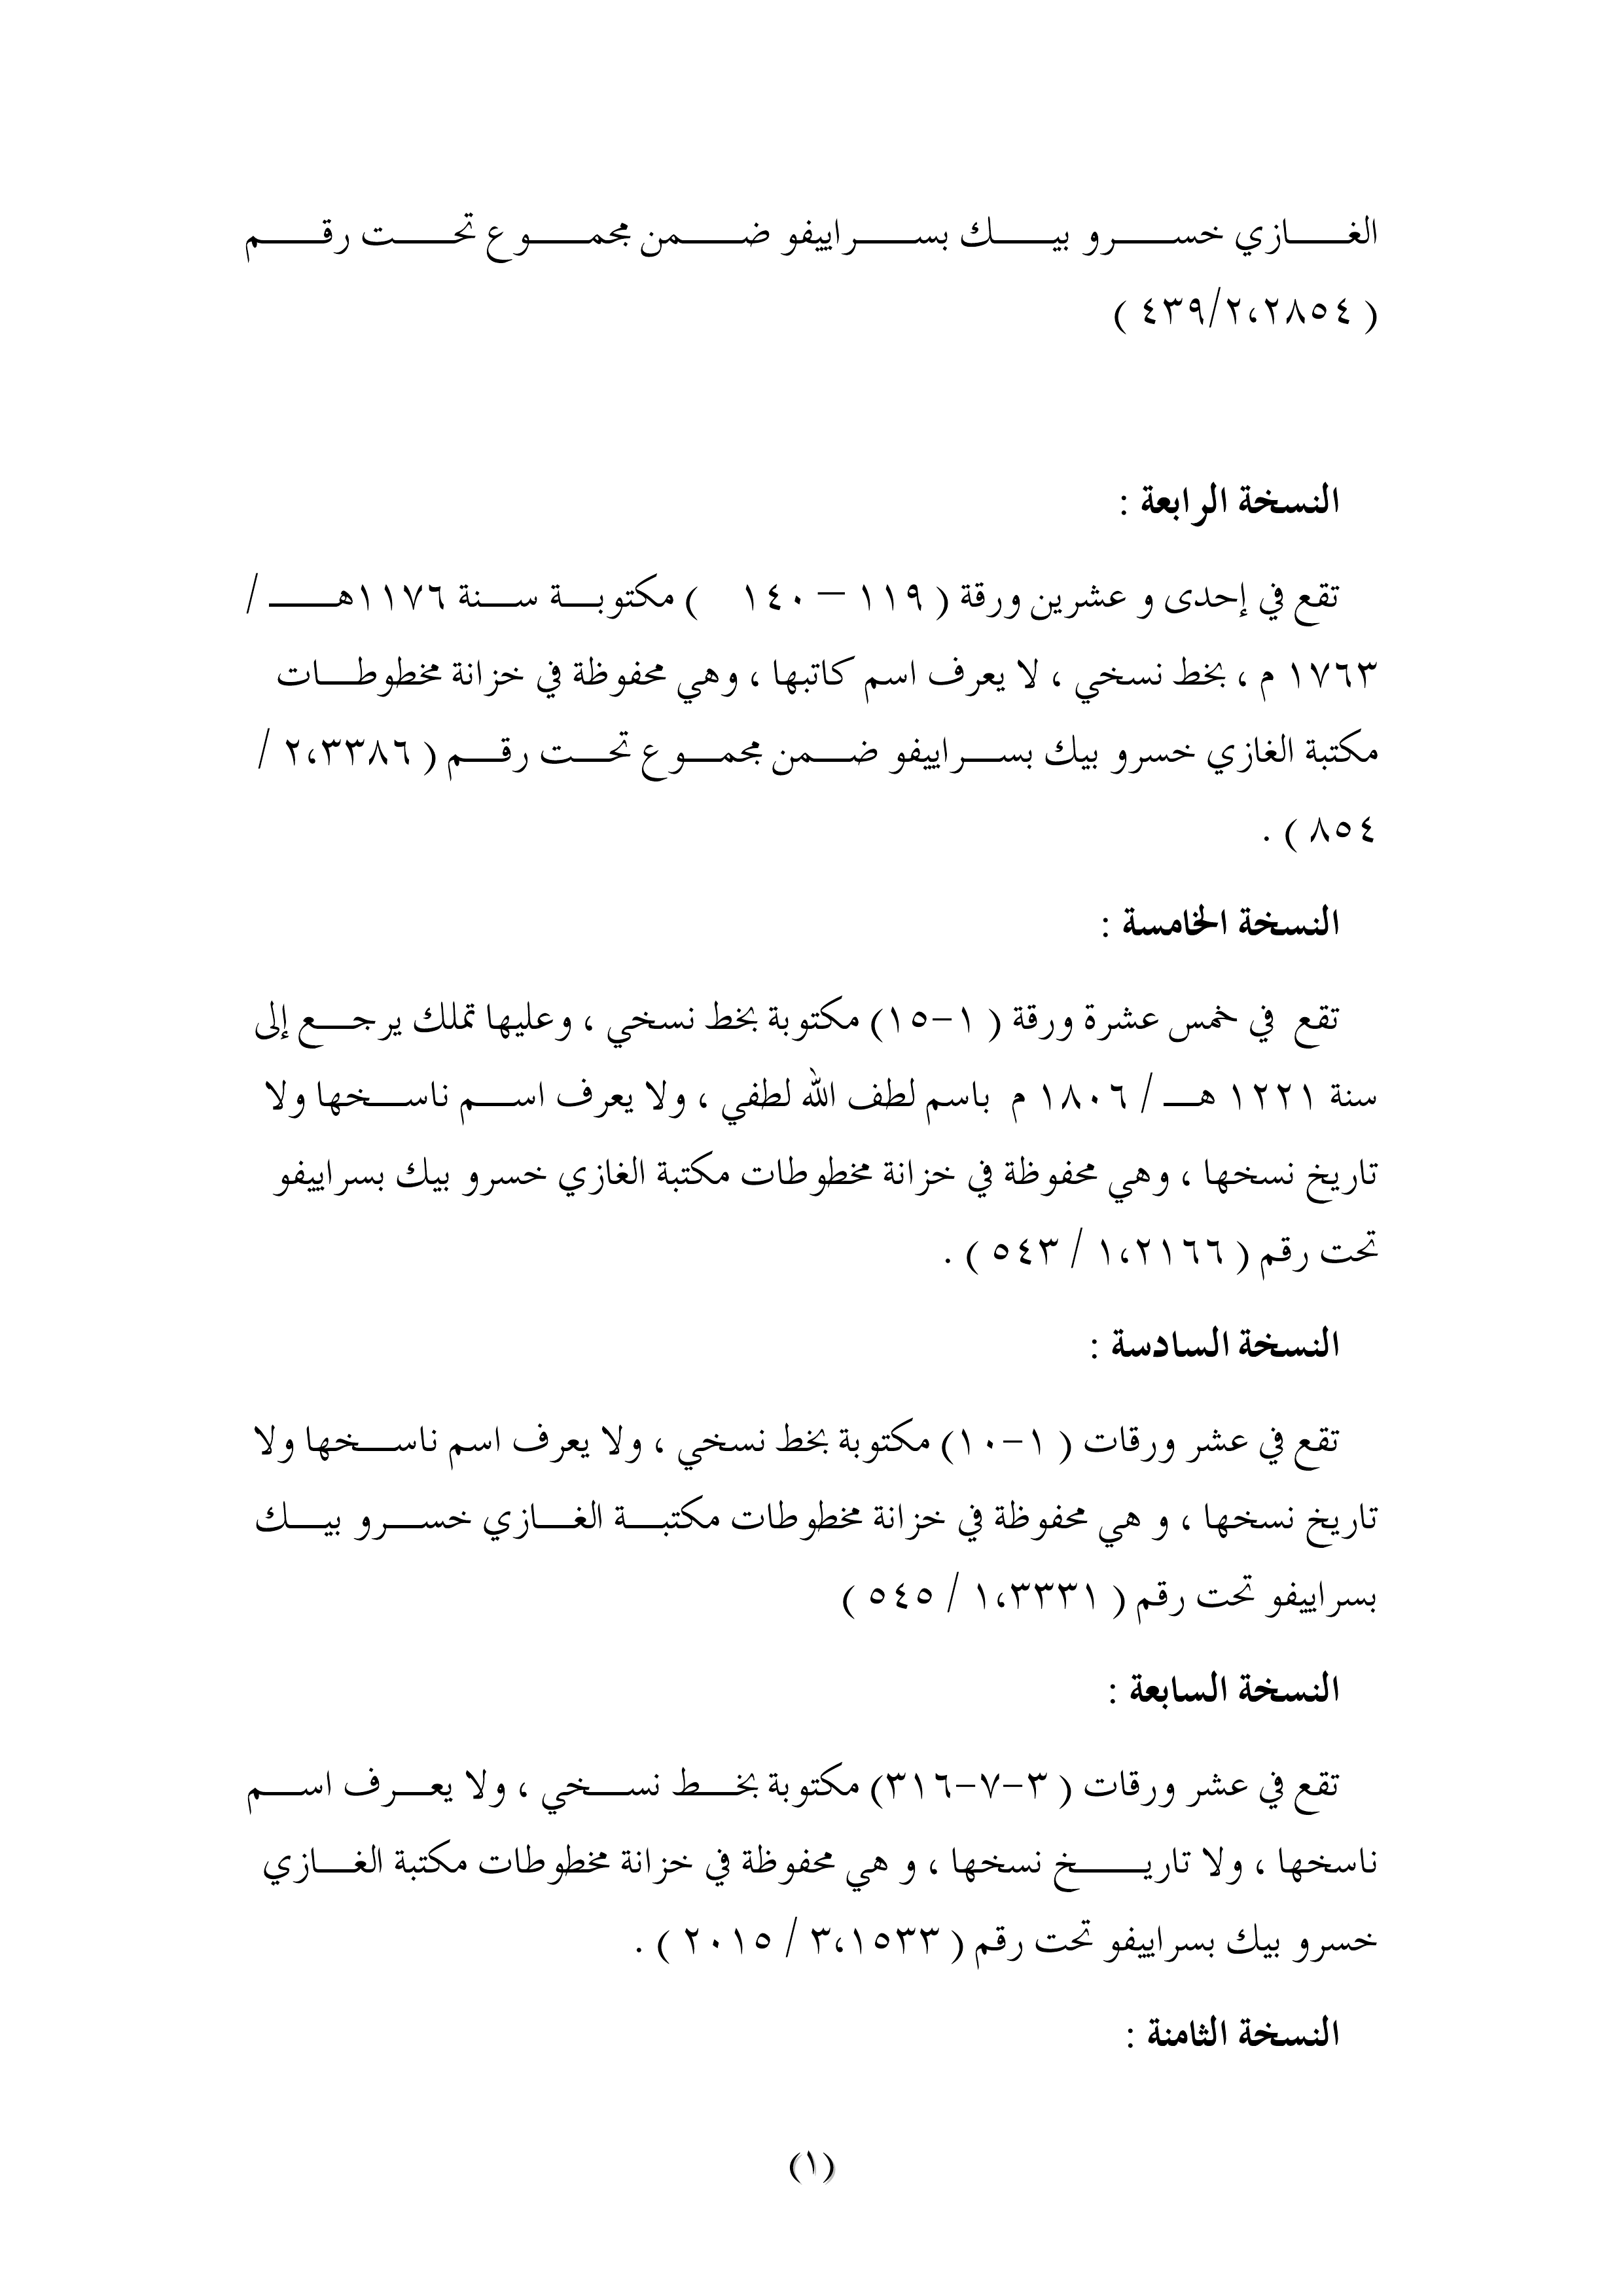 الغازي خسرو بيك بسراييفو ضمن مجموع تحت رقم
( ٤٣٩/٢،٢٨٥٤ )
النسخة الرابعة :
تقع في إحدى و عشرين ورقة ( ١١٩ – ١٤٠ ) مكتوبة سنة ١١٧٦هـ /
١٧٦٣ م ، بخط نسخي ، لا يعرف اسم كاتبها ، وهي محفوظة في خزانة مخطوطات
مكتبة الغازي خسرو بيك بسراييفو ضمن مجموع تحت رقم ( ٢،٣٣٨٦ /
٨٥٤ ) .
النسخة الخامسة :
تقع في خمس عشرة ورقة ( ١-١٥) مكتوبة بخط نسخي ، وعليها تملك يرجع إلى
سنة ١٢٢١ هـ / ١٨٠٦ م باسم لطف الله لطفي ، ولا يعرف اسم ناسخها ولا
تاريخ نسخها ، وهي محفوظة في خزانة مخطوطات مكتبة الغازي خسرو بيك بسراييفو
تحت رقم ( ١،٢١٦٦ / ٥٤٣ ) .
النسخة السادسة :
تقع في عشر ورقات ( ١-١٠) مكتوبة بخط نسخي ، ولا يعرف اسم ناسخها ولا
تاريخ نسخها ، و هي محفوظة في خزانة مخطوطات مكتبة الغازي خسرو بيك
بسراييفو تحت رقم ( ١،٣٣٣١ / ٥٤٥ )
النسخة السابعة :
تقع في عشر ورقات ( ٣-٧-٣١٦) مكتوبة بخط نسخي ، ولا يعرف اسم
ناسخها ، ولا تاريخ نسخها ، و هي محفوظة في خزانة مخطوطات مكتبة الغازي
خسرو بيك بسراييفو تحت رقم ( ٣،١٥٣٣ / ٢٠١٥ ) .
النسخة الثامنة :
(١)